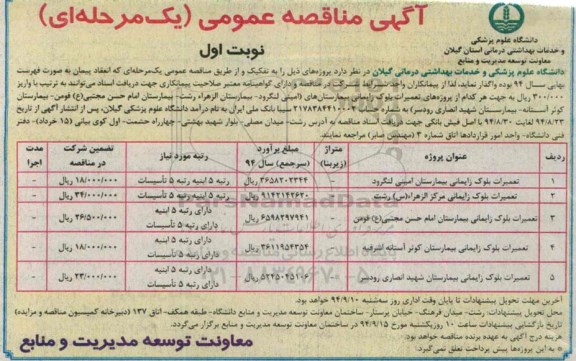 آگهی مناقصه عمومی (یک‌مرحله‌ای)
نوبت اول
دانشگاه علوم پزشکی
و خدمات بهداشتی درمانی استان گیلان
معاونت توسعه مدیریت و منابع
دانشگاه علوم پزشکی و خدمات بهداشتی درمانی گیلان در نظر دارد پروژه‌های ذیل را به تفکیک و از طریق مناقصه عمومی یک‌مرحله‌ای که انعقاد پیمان به صورت فهرست
بهایی سال ۹۴ بوده واگذار نماید، لذا از پیمانکاران واجد شرایط
جهت دریافت اسناد می‌توانند به ترتیب با واریز
۳۰۰/۰۰۰ ریال به جهت هر کدام از پروژه‌های تعمیرات بلوک زایمانی بیمارستان‌های (امینی لنگرود- بیمارستان الزهراء رشت- بیمارستان امام حسن مجتبی(ع) فومن- بیمارستان
کوثر آستانه- بیمارستان شهید انصاری رودسر) به شماره حساب
سیبا بانک ملی ایران به نام درآمد دانشگاه علوم پزشکی گیلان، پس از انتشار آگهی از تاریخ
۹۴/۸/۲۳ لغایت ۹۴/۸/۳۰ با اصل فیش بانکی جهت دریافت اسناد مناقصه به آدرس رشت- میدان مصلی- بلوار شهید بهشتی- چهارراه حشمت- اول کوی بیانی (۱۵ خرداد)- دفتر
فنی دانشگاه- واحد امور قراردادها اتاق شماره ۳ (مهندس صابر) مراجعه نمایند.
ردیف عنوان پروژه متراژ (زیربنا) مبلغ برآورد (سرجمع) سال ۹۴ رتبه مورد نیاز تضمین شرکت در مناقصه مدت اجرا
۱ تعمیرات بلوک زایمانی بیمارستان امینی لنگرود - ۳۶۵۸۲۰۲۳۴۴ ریال رتبه ۵ ابنیه رتبه ۵ تأسیسات ۱۸/۰۰۰/۰۰۰ ریال -
۲ تعمیرات بلوک زایمانی مرکز الزهرا(س) رشت - ریال دارای رتبه ۵ تأسیسات ۳۴/۰۰۰/۰۰۰ ریال -
۳ تعمیرات بلوک زایمانی بیمارستان امام حسن مجتبی(ع) فومن - ۶۵۹۸۳۹۷۹۴۱ ریال دارای رتبه ۵ ابنیه دارای رتبه ۵ تأسیسات ۲۶/۵۰۰/۰۰۰ ریال -
۴ تعمیرات بلوک زایمانی بیمارستان کوثر آستانه اشرفیه - ۳۶۱۱۹۵۴۳۵۴ ریال دارای رتبه ۵ ابنیه دارای رتبه ۵ تأسیسات ۱۸/۰۰۰/۰۰۰ ریال -
۵ تعمیرات بلوک زایمانی بیمارستان شهید انصاری رودسر - ریال دارای رتبه ۵ ابنیه دارای رتبه ۵ تأسیسات ۲۳/۰۰۰/۰۰۰ ریال -
آخرین مهلت تحویل پیشنهادات تا پایان وقت اداری روز سه‌شنبه ۹۴/۹/۱۰ خواهد بود.
محل تحویل پیشنهادات: رشت- میدان فرهنگ- خیابان پرستار- ساختمان معاونت توسعه مدیریت و منابع دانشگاه- طبقه همکف- اتاق ۱۳۷ (دبیرخانه کمیسیون مناقصه و مزایده)
تاریخ بازگشایی پیشنهادات ساعت ۱۰ روز یکشنبه مورخ ۹۴/۹/۱۵ در ساختمان معاونت توسعه مدیریت و منابع برگزار می‌گردد.
هزینه درج آگهی به عهده برنده مناقصه خواهد بود.
* به این پروژه‌ها پیش پرداخت تعلق نمی‌گیرد.
معاونت توسعه مدیریت و منابع